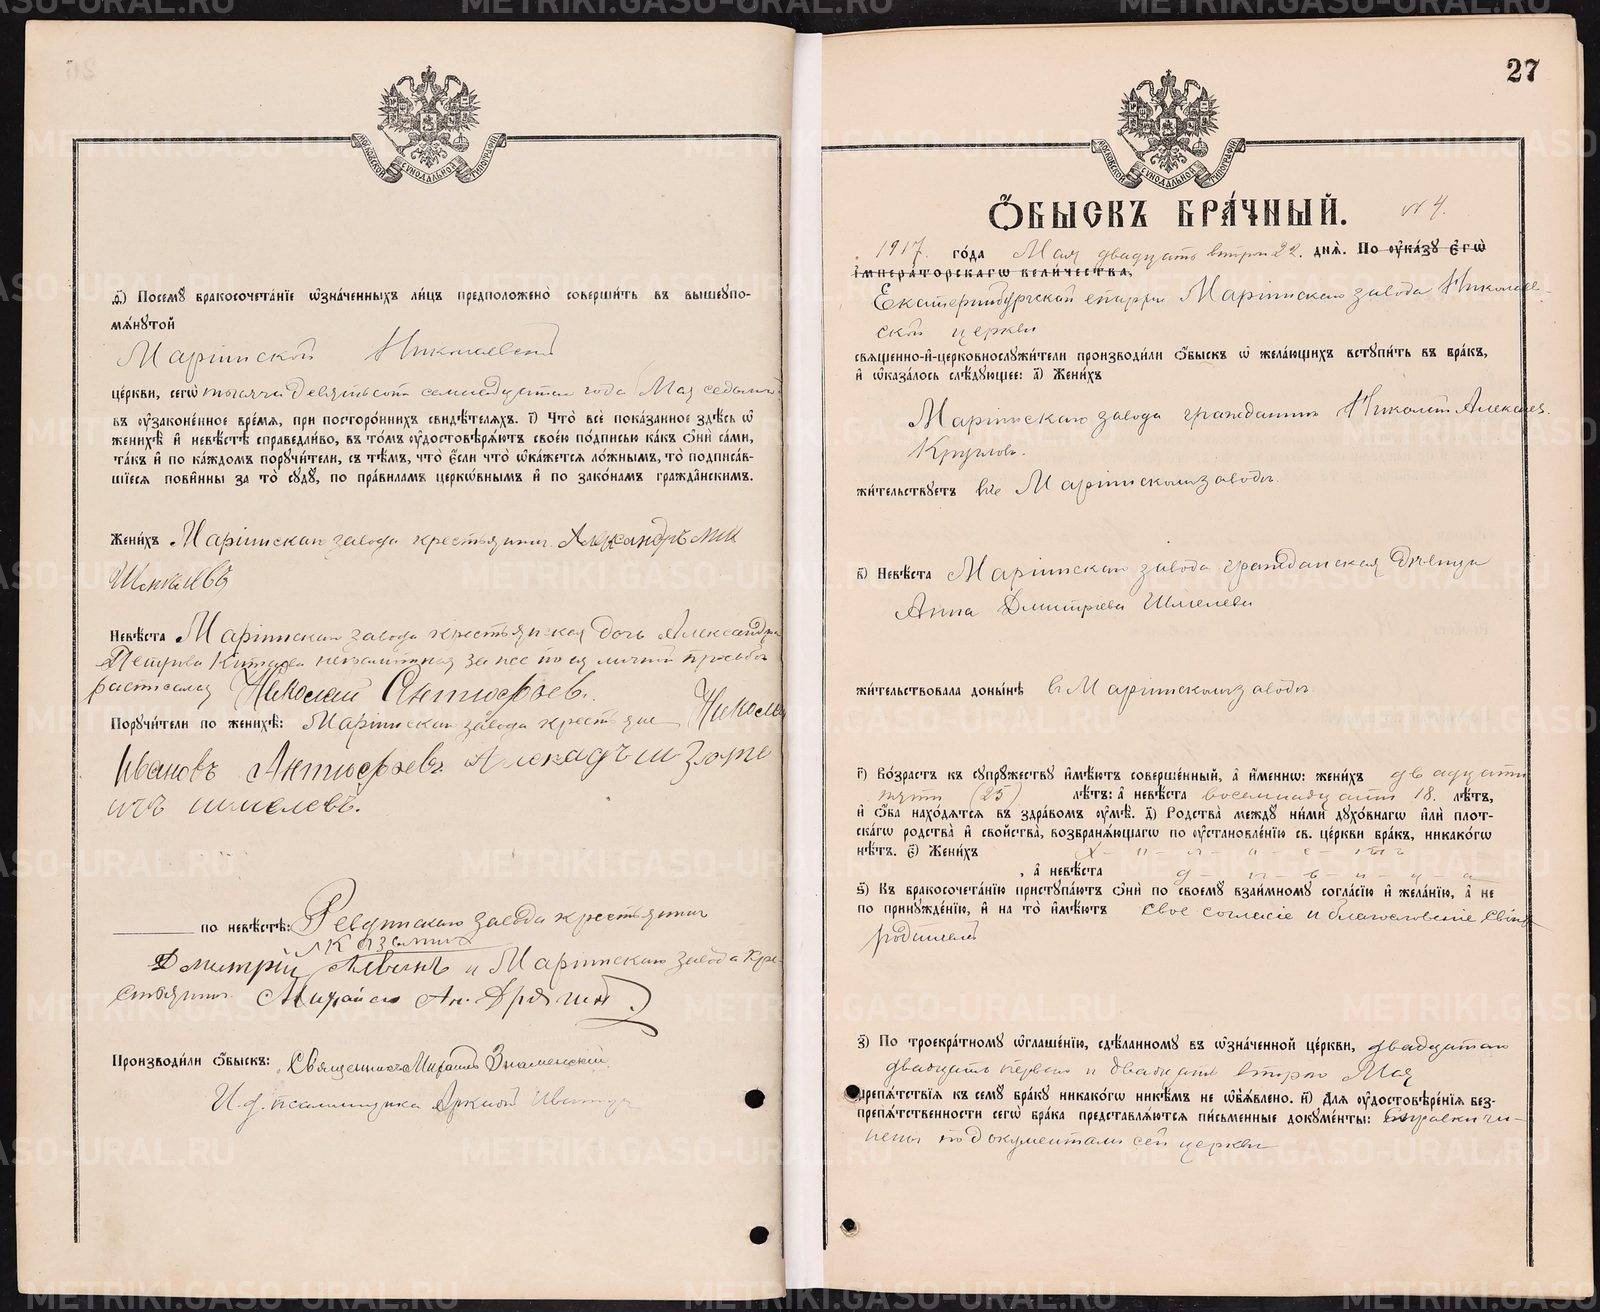 МОСКОВСКОЙ СѴНОДАЛЬНОЙ ТИПОГРАФІИ
Ѳ҃) Посему бракосочетаніе ѡзначенныхъ лицъ предположено совершить въ вышеупо-
мянутой
Маріинской Николаевской
церкви, сегѡ тысяча девятьсот семнадцатаго года Мая седьмого
въ узаконенное время, при постороннихъ свидѣтеляхъ. І҃) Что все показанное здѣсь ѡ
женихѣ и невѣстѣ справедливо, въ томъ удостовѣряютъ своею подписью какъ ѻни сами,
такъ и по каждомъ поручители, съ тѣмъ, что если что ѡкажется ложнымъ, то подписав-
шіеся повинны за то суду, по правиламъ церковнымъ и по законамъ гражданскимъ.
Женихъ Маріинскаго завода крестьянинъ Александръ
Невѣста Маріинскаго завода крестьянская дочь Александра
Петрова неграмотная за нее по ея личной просьбѣ
расписался Николай Антюфьев.
Поручители по женихѣ: Маріинскаго завода крестьяне Николай
Ивановъ Антюфьевъ
шмелевъ.
по невѣстѣ: Ревдинскаго завода крестьянинъ
Дмитрій и Маріинскаго завода кре-
стьянинъ Михаилъ
Производили ѻбыскъ: Священникъ Михаилъ Знаменскій
И. д. псаломщика
27
МОСКОВСКОЙ СѴНОДАЛЬНОЙ ТИПОГРАФІИ
Ѻбыскъ брачный. № 4.
1917. года Мая двадцать втораго 22. дня. По указу Егѡ
Императорскагѡ величества,
Екатеринбургской епархіи Маріинскаго завода Николаев-
ской церкви
священно-и-церковнослужители производили ѻбыскъ ѡ желающихъ вступить въ бракъ,
и ѡказалось слѣдующее: а҃) Женихъ
Маріинскаго завода гражданинъ Николай Алексѣев.
Круглов.
жительствуетъ въ Маріинскомъ заводѣ.
в҃) Невѣста Маріинскаго завода гражданская дѣвица
Анна Дмитріева Шмелева
жительствовала донынѣ въ Маріинскомъ заводѣ.
г҃) Возрастъ къ супружеству имѣютъ совершенный, а именнѡ: женихъ двадцати
пяти (25) лѣтъ: а невѣста восемнадцати 18. лѣтъ,
и ѻба находятся въ здравомъ умѣ. д҃) Родства между ними духовнагѡ или плот-
скагѡ родства и свойства, возбраняющагѡ по установленію св. церкви бракъ, никакогѡ
нѣтъ. є҃) Женихъ х о л о с т ъ
, а невѣста д ѣ в и ц а
ѕ҃) Къ бракосочетанію приступаютъ ѻни по своему взаимному согласію и желанію, а не
по принужденію, и на то имѣютъ свое согласіе и благословеніе своихъ
родителей
з҃) По троекратному ѡглашенію, сдѣланному въ ѡзначенной церкви, двадцатаго
двадцать перваго и двадцать втораго Мая
препятствія къ сему браку никакогѡ никѣмъ не ѡбъявлено. и҃) Для удостовѣренія без-
препятственности сегѡ брака представляются письменные документы: справки учи-
нены по документамъ сей церкви
METRIKI.GASO-URAL.RU